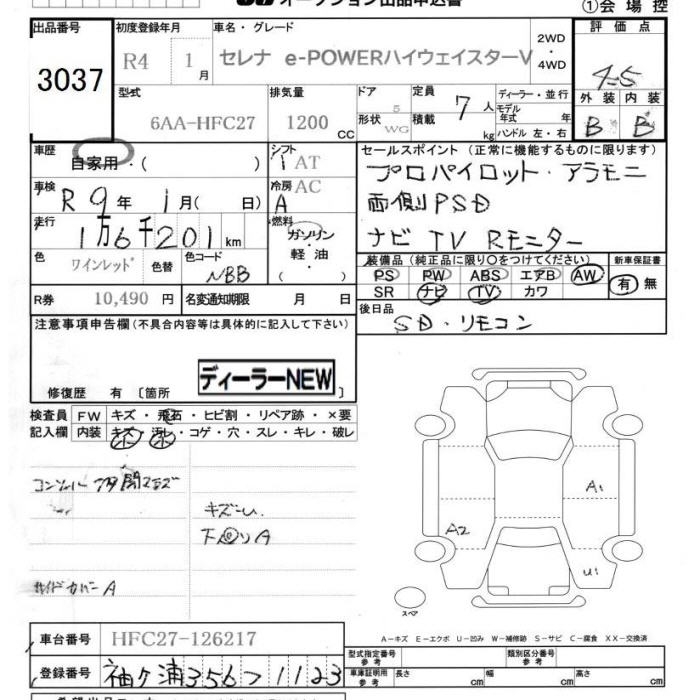 オークション出品申込書
①会場控
出品番号
3037
初度登録年月
R4 1月
車名・グレード
セレナ e-POWERハイウェイスターV
2WD・4WD
評価点
4.5
外装 内装
B B
型式
6AA-HFC27
排気量
1200 CC
ドア 5
形状 WG
定員 7人
積載 kg
ディーラー・並行
モデル年式 年
ハンドル 左・右
車歴
自家用・( )
シフト
AT
車検
R9年 1月( 日)
冷房 AC
A
走行
1万6千201km
燃料
ガソリン・軽油・( )
色 ワインレッド 色替
色コード NBB
R券 10,490円
名変通知期限 月 日
セールスポイント (正常に機能するものに限ります)
プロパイロット・アラモニ
両側PSD
ナビ TV Rモニター
装備品(純正品に限り○をつけてください)
PS PW ABS エアB AW
SR ナビ TV カワ
新車保証書
有 無
後日品
SD・リモコン
注意事項申告欄(不具合内容等は具体的に記入して下さい)
ディーラーNEW
修復歴 有〔箇所 〕
検査員記入欄
FW キズ・飛石・ヒビ割・リペア跡・×要
内装 キズ・汚レ・コゲ・穴・スレ・キレ・破レ
キズ小
下回りA
サイドカバーA
A1
A2
U1
スペア
A-キズ E-エクボ U-凹み W-補修跡 S-サビ C-腐食 XX-交換済
車台番号 HFC27-126217
登録番号 袖ヶ浦356つ1123
型式指定番号 参考
類別区分番号 参考
車庫証明用 参考 長さ cm 幅 cm 高さ cm